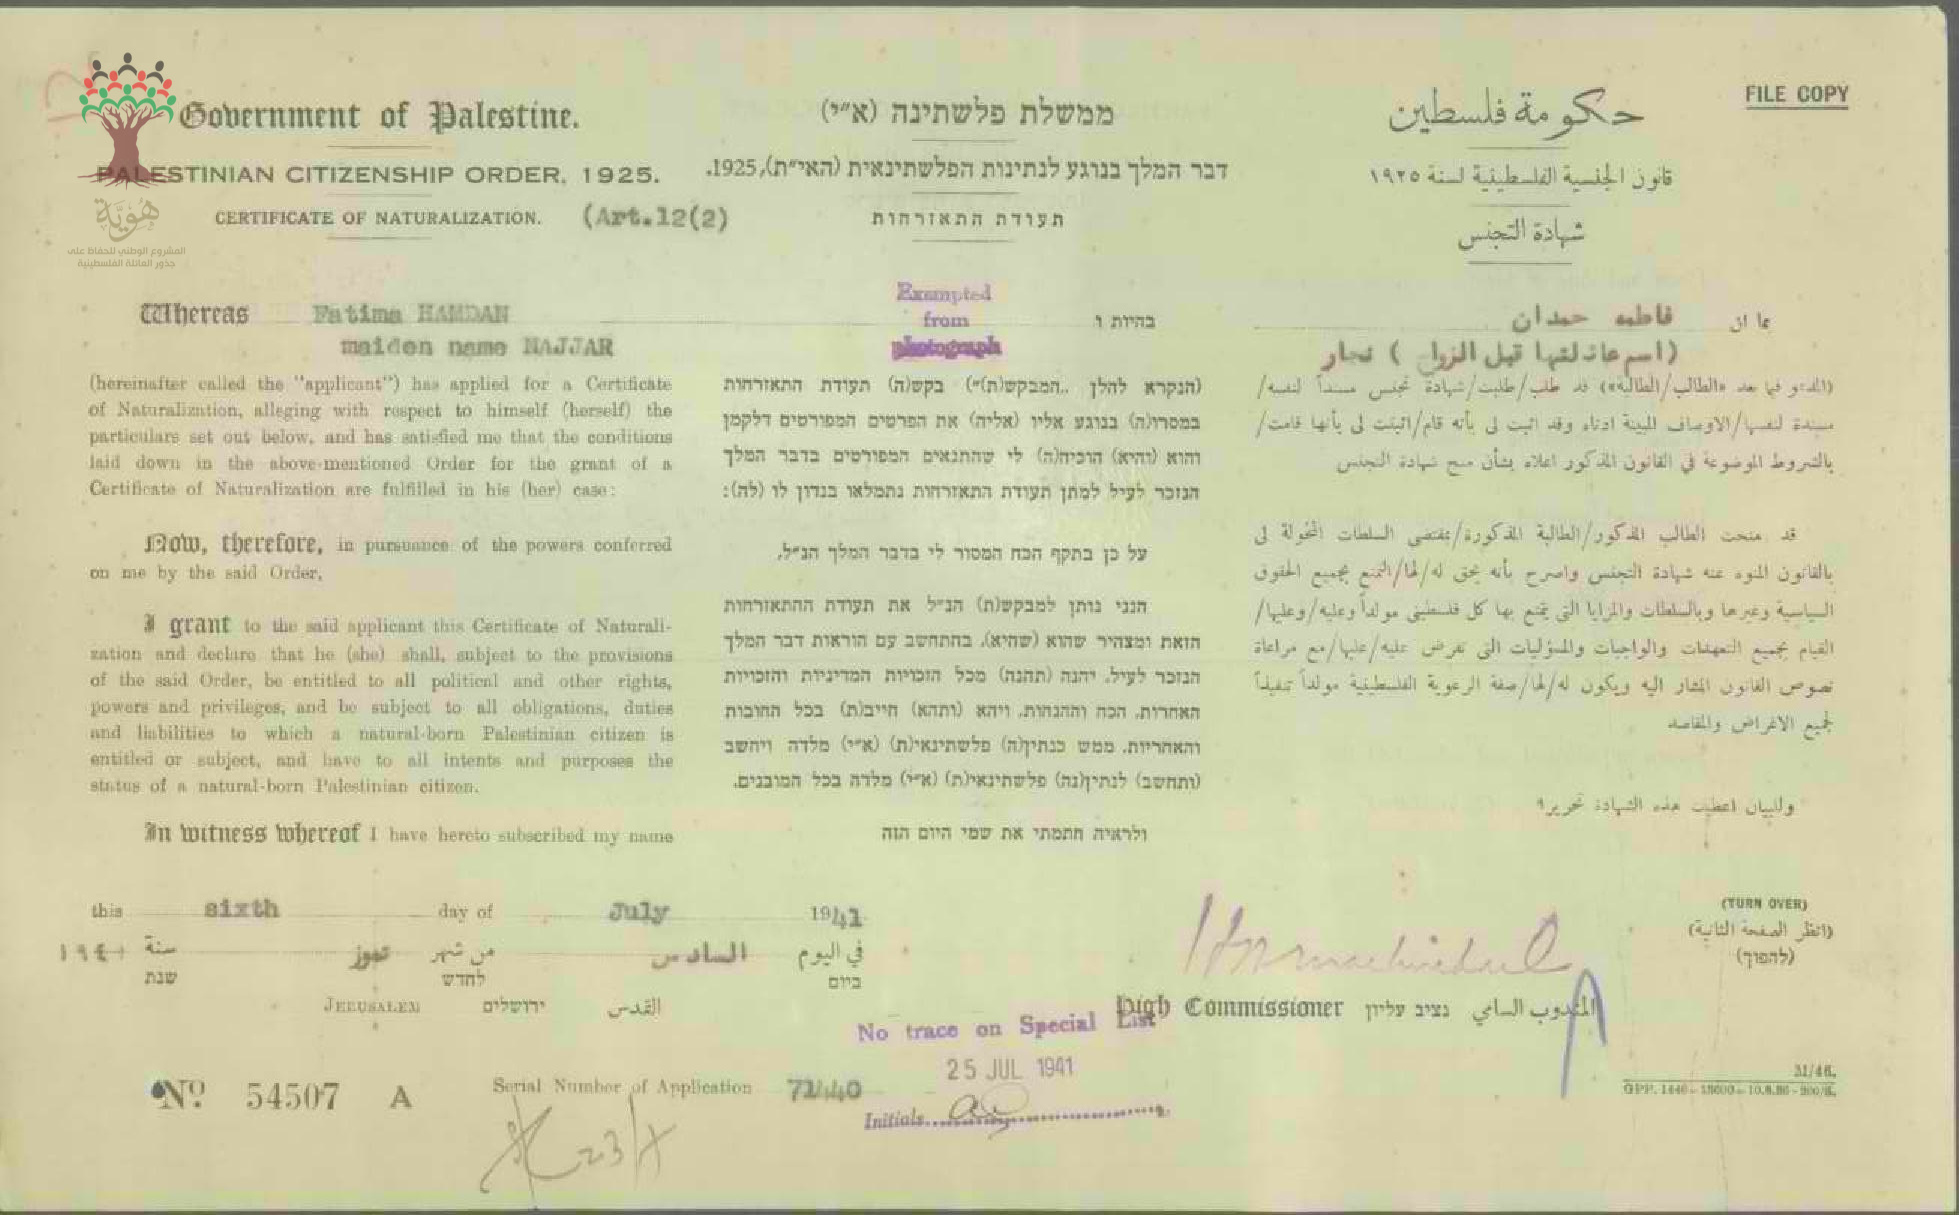 FILE COPY
Government of Palestine.
PALESTINIAN CITIZENSHIP ORDER, 1925.
CERTIFICATE OF NATURALIZATION. (Art.12(2)
هُويَّة
المشروع الوطني للحفاظ على
جذور العائلة الفلسطينية
Whereas Fatima HAMDAN
maiden name NAJJAR
(hereinafter called the "applicant") has applied for a Certificate
of Naturalization, alleging with respect to himself (herself) the
particulars set out below, and has satisfied me that the conditions
laid down in the above-mentioned Order for the grant of a
Certificate of Naturalization are fulfilled in his (her) case:
Now, therefore, in pursuance of the powers conferred
on me by the said Order,
I grant to the said applicant this Certificate of Naturali-
zation and declare that he (she) shall, subject to the provisions
of the said Order, be entitled to all political and other rights,
powers and privileges, and be subject to all obligations, duties
and liabilities to which a natural-born Palestinian citizen is
entitled or subject, and have to all intents and purposes the
status of a natural-born Palestinian citizen.
In witness whereof I have hereto subscribed my name
ממשלת פלשתינה (א״י)
דבר המלך בנוגע לנתינות הפלשתינאית (האי״ת), 1925.
תעודת התאזרחות
Exempted
from
photograph
בהיות ו
(הנקרא להלן ,,המבקש(ת)״) בקש(ה) תעודת התאזרחות
במסרו(ה) בנוגע אליו (אליה) את הפרטים המפורטים דלקמן
והוא (והיא) הוכיח(ה) לי שהתנאים המפורטים בדבר המלך
הנזכר לעיל למתן תעודת התאזרחות נתמלאו בנדון לו (לה):
על כן בתקף הכח המסור לי בדבר המלך הנ״ל,
הנני נותן למבקש(ת) הנ״ל את תעודת ההתאזרחות
הזאת ומצהיר שהוא (שהיא), בהתחשב עם הוראות דבר המלך
הנזכר לעיל, יהנה (תהנה) מכל הזכויות המדיניות והזכויות
האחרות, הכח וההנחות, ויהא (ותהא) חייב(ת) בכל החובות
והאחריות, ממש כנתין(ה) פלשתינאי(ת) (א״י) מלדה ויחשב
(ותחשב) לנתין(נה) פלשתינאי(ת) (א״י) מלדה בכל המובנים.
ולראיה חתמתי את שמי היום הזה
حكومة فلسطين
قانون الجنسية الفلسطينية لسنة ١٩٢٥
شهادة التجنس
بما ان فاطمه حمدان
(اسم عائلتها قبل الزواج) نجار
(المدعو فيما بعد «الطالب/الطالبة») قد طلب/طلبت/شهادة تجنس مسنداً لنفسه/
مسندة لنفسها/الاوصاف المبينة ادناه وقد اثبت لي بأنه قام/اثبتت لي بأنها قامت/
بالشروط الموضوعة في القانون المذكور اعلاه بشأن منح شهادة التجنس
قد منحت الطالب المذكور/الطالبة المذكورة/بمقتضى السلطات المخولة لي
بالقانون المنوه عنه شهادة التجنس واصرح بأنه يحق له/لها/التمتع بجميع الحقوق
السياسية وغيرها وبالسلطات والمزايا التي يتمتع بها كل فلسطيني مولداً وعليه/وعليها/
القيام بجميع التعهدات والواجبات والمسؤليات التي تفرض عليه/عليها/مع مراعاة
نصوص القانون المشار اليه ويكون له/لها/صفة الرعوية الفلسطينية مولداً تنفيذاً
لجميع الاغراض والمقاصد
وللبيان اعطيت هذه الشهادة تحريرا
this sixth day of July 1941
في اليوم السادس من شهر تموز سنة ١٩٤١
ביום לחדש שנת
JERUSALEM ירושלים القدس
(TURN OVER)
(انظر الصفحة الثانية)
(להפוך)
High Commissioner נציב עליון المندوب السامي
No trace on Special List
25 JUL 1941
Initials
No. 54507 A
Serial Number of Application 71440
M/46.
GPP. 1446— 15000— 10.8.36 - 300/S.